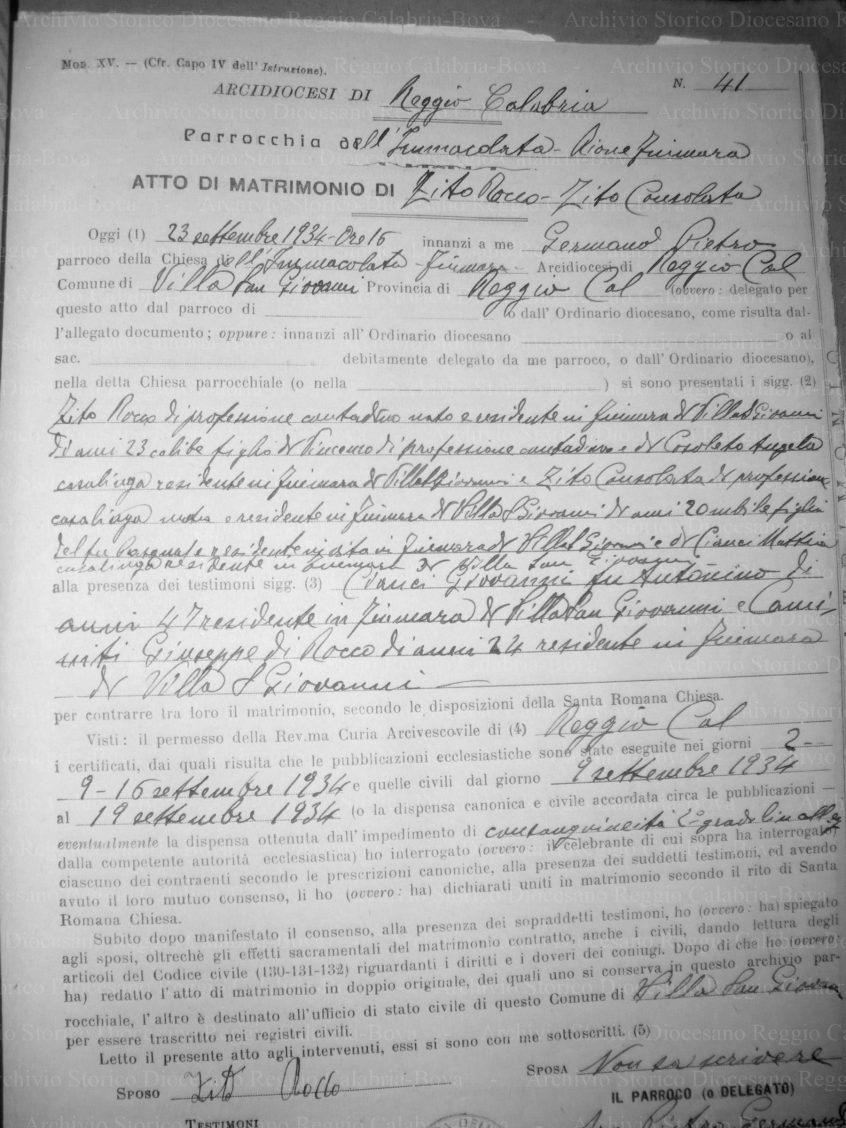 Mod. XV. — (Cfr. Capo IV dell' Istruzione).
N. 41
ARCIDIOCESI DI Reggio Calabria
Parrocchia dell'Immacolata - Rione Fiumara
ATTO DI MATRIMONIO DI Zito Rocco - Zito Consolata
Oggi (1) 23 settembre 1934 - Ore 16 innanzi a me Germanò Pietro
parroco della Chiesa dell'Immacolata - Fiumara - Arcidiocesi di Reggio Cal
Comune di Villa San Giovanni Provincia di Reggio Cal (ovvero: delegato per
questo atto dal parroco di o dall' Ordinario diocesano, come risulta dal-
l'allegato documento; oppure: innanzi all' Ordinario diocesano o al
sac. debitamente delegato da me parroco, o dall' Ordinario diocesano),
nella detta Chiesa parrocchiale (o nella ) si sono presentati i sigg. (2)
Zito Rocco di professione contadino nato e residente in Fiumara di Villa S Giovanni
di anni 23 celibe figlio di Vincenzo di professione contadino e di Cosoleto Angela
casalinga residente in Fiumara di Villa S Giovanni e Zito Consolata di professione
casalinga nata e residente in Fiumara di Villa S Giovanni di anni 20 nubile figlia
del fu Pasquale residente in vita in Fiumara di Villa S Giovanni e di Cianci Mattia
casalinga residente in Fiumara di Villa San Giovanni
alla presenza dei testimoni sigg. (3) Cianci Giovanni fu Antonino di
anni 47 residente in Fiumara di Villa San Giovanni e Cami
niti Giuseppe di Rocco di anni 24 residente in Fiumara
di Villa S Giovanni
per contrarre tra loro il matrimonio, secondo le disposizioni della Santa Romana Chiesa.
Visti: il permesso della Rev.ma Curia Arcivescovile di (4) Reggio Cal
i certificati, dai quali risulta che le pubblicazioni ecclesiastiche sono state eseguite nei giorni 2-
9-16 settembre 1934 e quelle civili dal giorno 9 settembre 1934
al 19 settembre 1934 (o la dispensa canonica e civile accordata circa le pubblicazioni —
eventualmente la dispensa ottenuta dall'impedimento di consanguineità 2º grado lin
dalla competente autorità ecclesiastica) ho interrogato (ovvero: il celebrante di cui sopra ha interrogato)
ciascuno dei contraenti secondo le prescrizioni canoniche, alla presenza dei suddetti testimoni, ed avendo
avuto il loro mutuo consenso, li ho (ovvero: ha) dichiarati uniti in matrimonio secondo il rito di Santa
Romana Chiesa.
Subito dopo manifestato il consenso, alla presenza dei sopraddetti testimoni, ho (ovvero: ha) spiegato
agli sposi, oltrechè gli effetti sacramentali del matrimonio contratto, anche i civili, dando lettura degli
articoli del Codice civile (130-131-132) riguardanti i diritti e i doveri dei coniugi. Dopo di che ho (ovvero:
ha) redatto l'atto di matrimonio in doppio originale, dei quali uno si conserva in questo archivio par-
rocchiale, l'altro è destinato all'ufficio di stato civile di questo Comune di Villa San Giovanni
per essere trascritto nei registri civili.
Letto il presente atto agli intervenuti, essi si sono con me sottoscritti. (5)
SPOSO Zito Rocco SPOSA Non sa scrivere
TESTIMONI IL PARROCO (O DELEGATO)
Pietro Germanò
Archivio Storico Diocesano Reggio Calabria-Bova